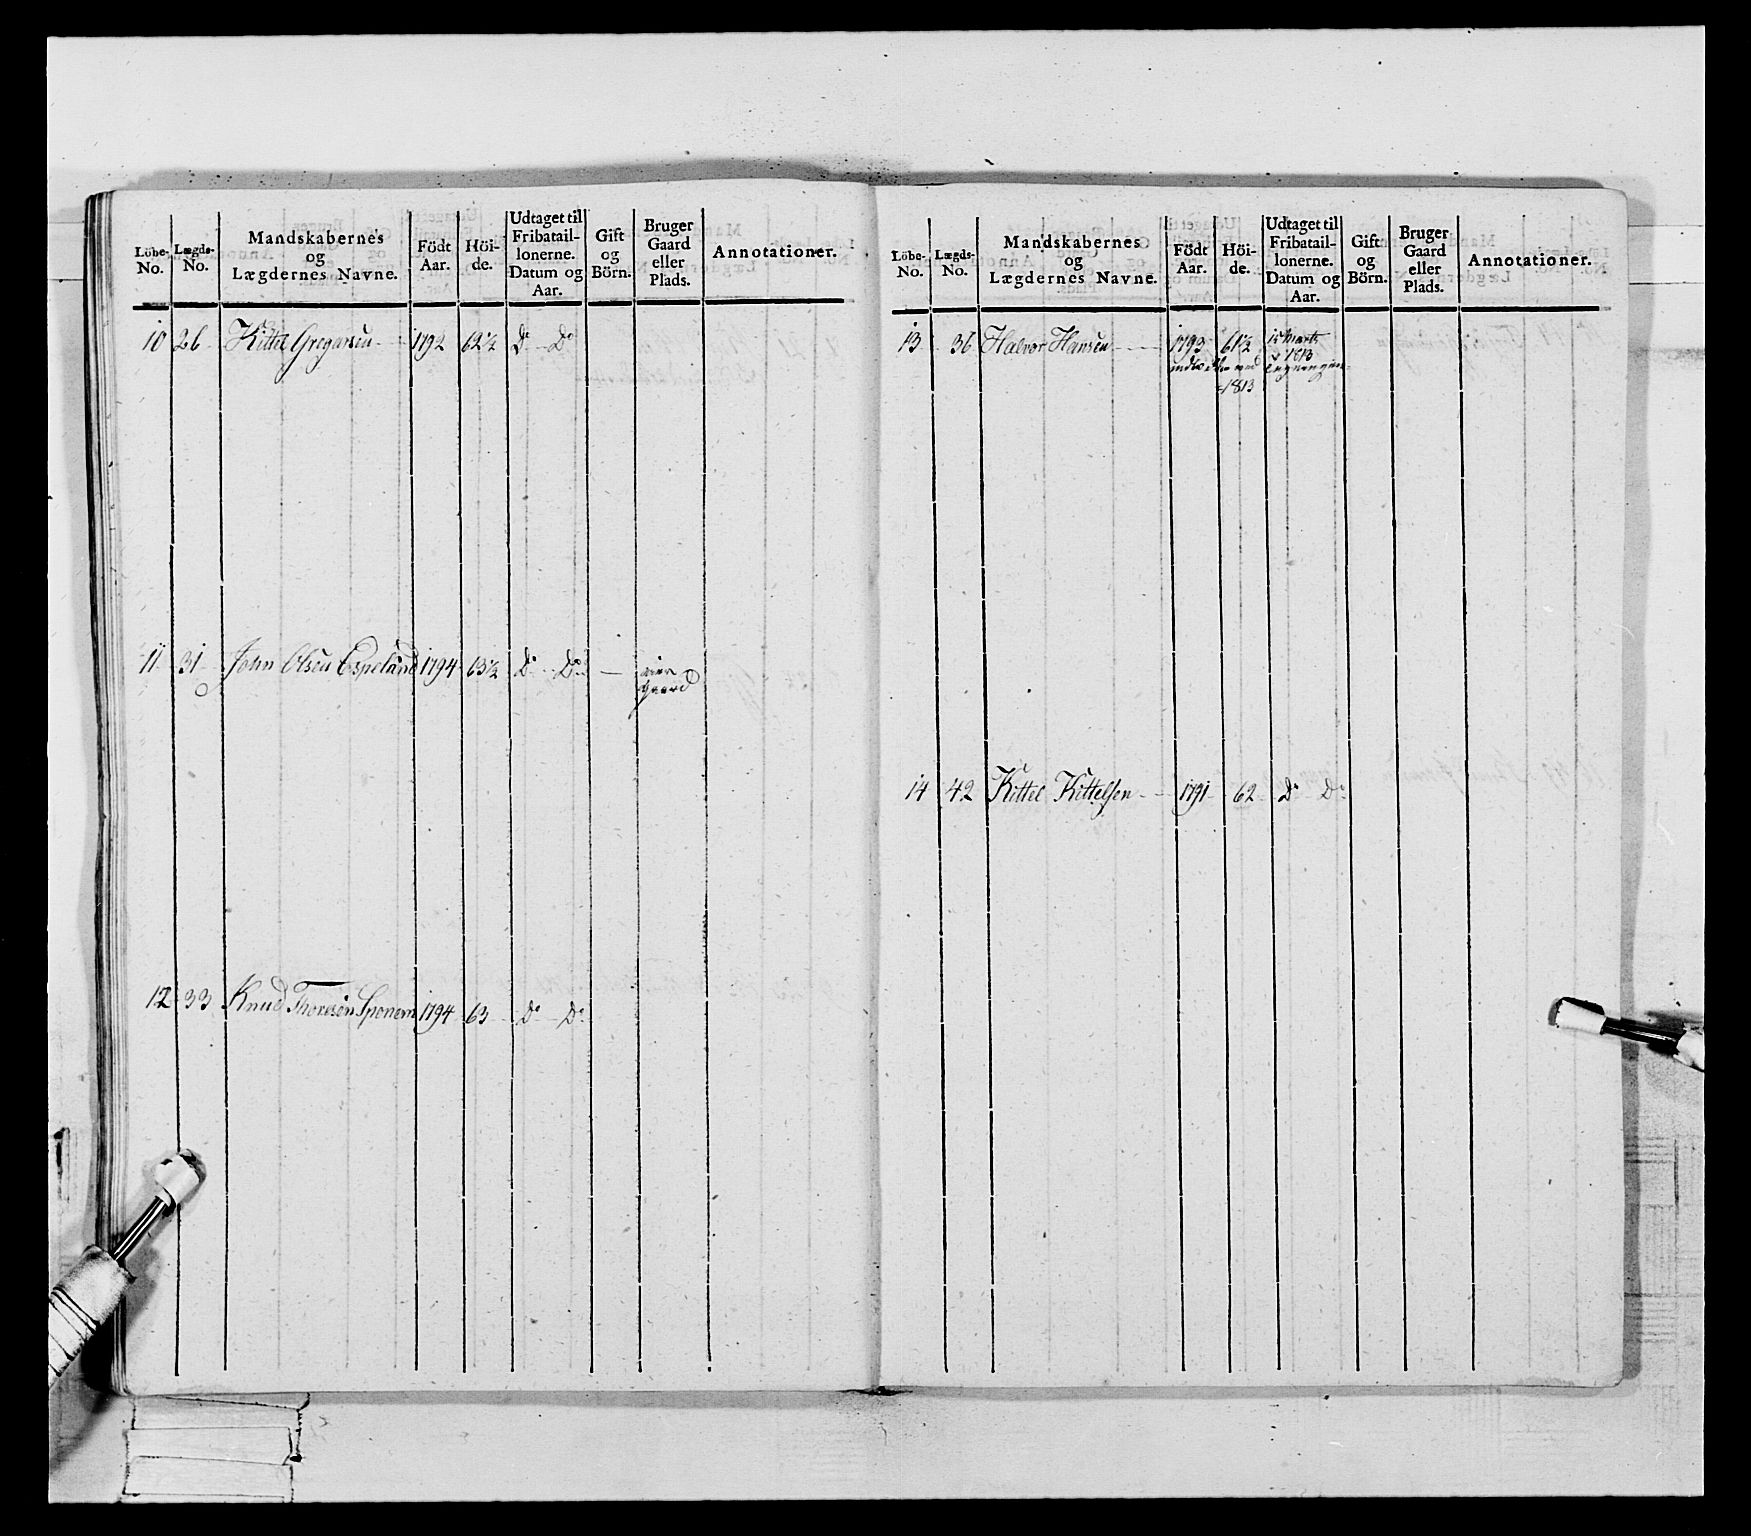 Löbe-No. Lægds-No. Mandskabernes og Lægdernes Navne. Födt Aar. Höi-de. Udtaget til Fribatail-lonerne. Datum og Aar. Gift og Börn. Bruger Gaard eller Plads. Annotationer.
10 26 Kittel Gregarsen 1792 62½ Do Do
11 31 John Olsen Espeland 1794 63½ Do Do — eier
Gaard
12 33 Knud Thoresen Sponem 1794 63 Do Do
Löbe-No. Lægds-No. Mandskabernes og Lægdernes Navne. Födt Aar. Höi-de. Udtaget til Fribatail-lonerne. Datum og Aar. Gift og Börn. Bruger Gaard eller Plads. Annotationer.
13 36 Halvor Hansen 1793 61½ 15 Marts
1813
ved
1813
14 42 Kittel Kittelsen 1791 62 Do Do